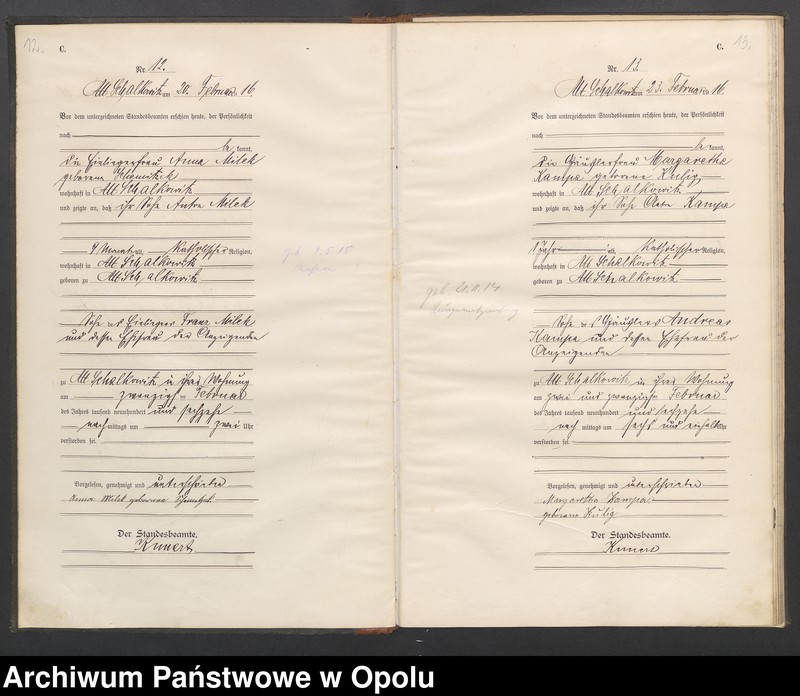 12.
C.
Nr. 12.
Alt Schalkowitz am 20. Februar 16
Vor dem unterzeichneten Standesbeamten erschien heute, der Persönlichkeit
nach
be kannt,
die Einliegerfrau Anna Milek
geborene
wohnhaft in Alt Schalkowitz
und zeigte an, daß ihr Sohn Anton Milek
4 Monate alt, Katholischer Religion,
wohnhaft in Alt Schalkowitz
geboren zu Alt Schalkowitz
Sohn des Einlieger Franz Milek
und dessen Ehefrau der Anzeigenden
zu Alt Schalkowitz in ihrer Wohnung
am zwanzigsten Februar
des Jahres tausend neunhundert und sechzehn
nach mittags um zwei Uhr
verstorben sei.
Vorgelesen, genehmigt und unterschrieben
Anna Milek geborene
Der Standesbeamte.
Kunert
C.
13.
Nr. 13
Alt Schalkowitz am 23. Februar 16
Vor dem unterzeichneten Standesbeamten erschien heute, der Persönlichkeit
nach
be kannt,
die Häuslerfrau Margarethe
Kampa geborene Kulig
wohnhaft in Alt Schalkowitz
und zeigte an, daß ihr Sohn Kampa
1 Jahr alt, Katholischer Religion,
wohnhaft in Alt Schalkowitz
geboren zu Alt Schalkowitz
Sohn des Häuslers Andreas
Kampa und dessen Ehefrau der
Anzeigenden
zu Alt Schalkowitz in ihrer Wohnung
am zwei und zwanzigsten Februar
des Jahres tausend neunhundert und sechzehn
nach mittags um sechs und einhalb Uhr
verstorben sei.
Vorgelesen, genehmigt und unterschrieben
Margaretha Kampa
geborene Kulig
Der Standesbeamte.
Kunert
Archiwum Państwowe w Opolu